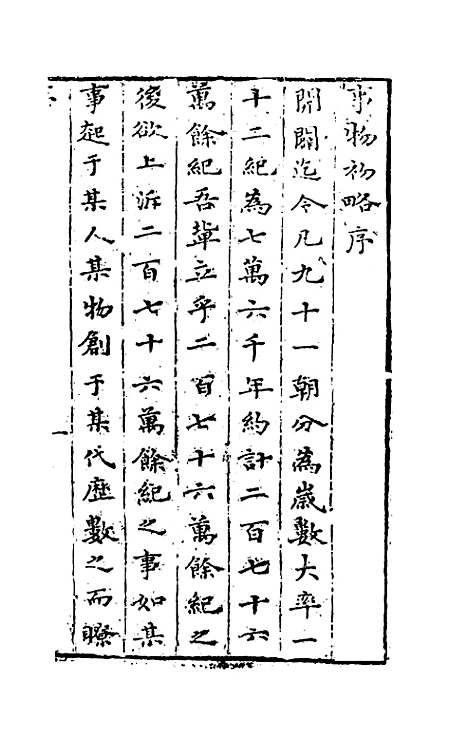 事物初略序
開闢迄今凡九十一朝分為歲數大率一
十二紀為七萬六千年約計二百七十六
萬餘紀吾軰立乎二百七十六萬餘紀之
後欲上泝二百七十六萬餘紀之事如某
事起于某人某物創于某代歷數之而瞭